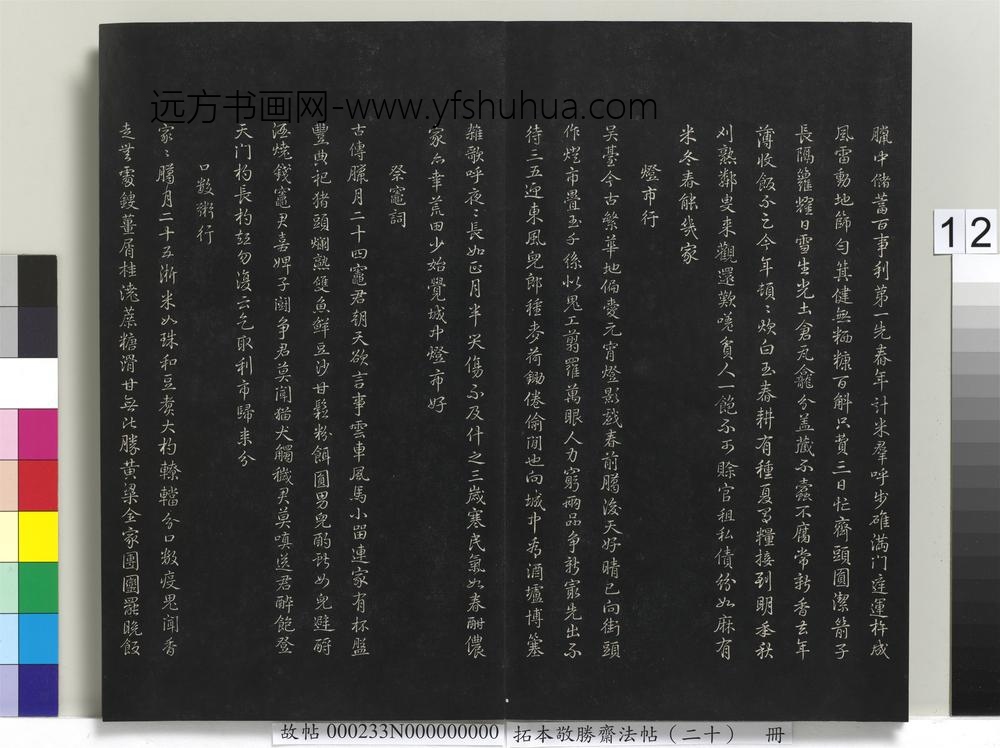 臘中儲蓄百事利第一先舂年計米羣呼步碓滿門庭運杵成
風雷動地篩勻箕健無粞糠百斛只費三日忙齊頭圓潔箭子
長隔籮耀日雪生光土倉瓦龕分蓋藏不蠹不腐常新香去年
薄收飯不足今年頓〻炊白玉春耕有種夏有糧接到明年秋
刈熟鄰叟來觀還歎嗟貧人一飽不可賒官租私債紛如麻有
米冬舂能幾家
燈市行
吳臺今古繁華地偏愛元宵燈影戲春前臘後天好晴已向街頭
作燈市疊玉千絲似鬼工剪羅萬眼人力窮兩品爭新最先出不
待三五迎東風兒郎種麥荷鋤倦偷閒也向城中看酒壚博簺
雜歌呼夜〻長如正月半災傷不及什之三歲寒民氣如春酣儂
家亦幸荒田少始覺城中燈市好
祭竈詞
古傳臘月二十四竈君朝天欲言事雲車風馬小留連家有杯盤
豐典祀猪頭爛熟雙魚鮮豆沙甘鬆粉餌圓男兒酌獻女兒避酹
酒燒錢竈君喜婢子鬭爭君莫聞猫犬觸穢君莫嗔送君醉飽登
天门杓長杓短勿復云乞取利市歸來分
口數粥行
家〻臘月二十五淅米如珠和豆煮大杓轑鐺分口數疫鬼聞香
走無處鎪薑屑桂澆蔗糖滑甘無比勝黃粱全家團圞罷晚飯
远方书画网-www.yfshuhua.com
12
故帖 000233N000000000 拓本敬勝齋法帖(二十) 冊